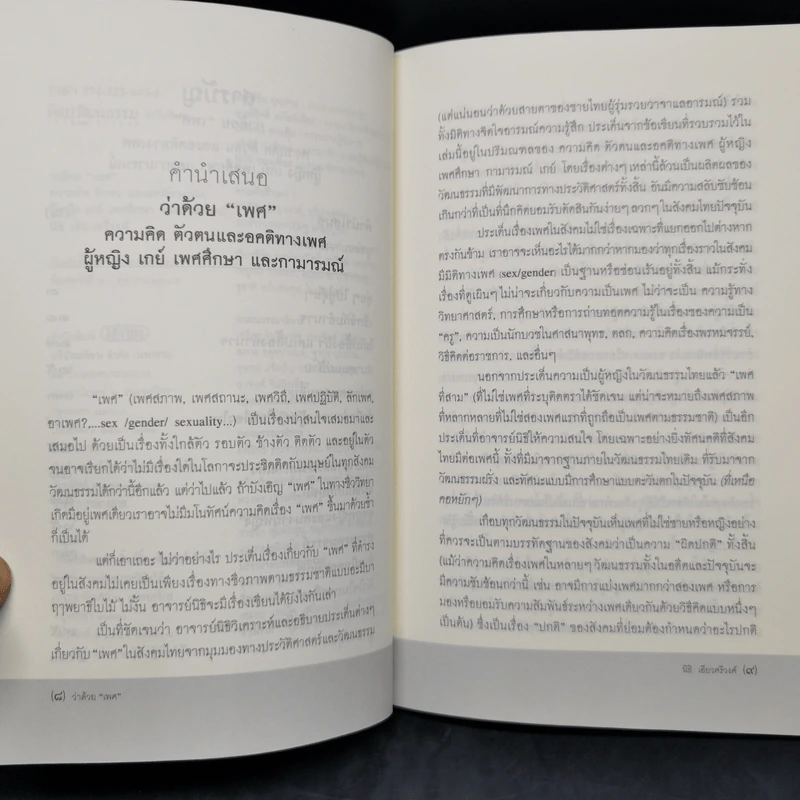 คำนำเสนอ
ว่าด้วย “เพศ”
ความคิด ตัวตนและอคติทางเพศ
ผู้หญิง เกย์ เพศศึกษา และกามารมณ์
“เพศ” (เพศสภาพ, เพศสถานะ, เพศวิถี, เพศปฏิบัติ, ลักเพศ,
อาเพศ?,...sex /gender/ sexuality...) เป็นเรื่องน่าสนใจเสมอมาและ
เสมอไป ด้วยเป็นเรื่องทั้งใกล้ตัว รอบตัว ข้างตัว ติดตัว และอยู่ในตัว
จนอาจเรียกได้ว่าไม่มีเรื่องใดในโลกาจะประชิดติดกับมนุษย์ในทุกสังคม
วัฒนธรรมได้กว่านี้อีกแล้ว แต่ว่าไปแล้ว ถ้าบังเอิญ “เพศ” ในทางชีววิทยา
เกิดมีอยู่เพศเดียวเราอาจไม่มีมโนทัศน์ความคิดเรื่อง “เพศ” ขึ้นมาด้วยซ้ำ
ก็เป็นได้
แต่ก็เอาเถอะ ไม่ว่าอย่างไร ประเด็นเรื่องเกี่ยวกับ “เพศ” ที่ดำรง
อยู่ในสังคมไม่เคยเป็นเพียงเรื่องทางชีวภาพตามธรรมชาติแบบอะมีบา
ฤๅพญาธิใบไม้ ไม่งั้น อาจารย์นิธิจะมีเรื่องเขียนได้ยังไงกันเล่า
เป็นที่ชัดเจนว่า อาจารย์นิธิวิเคราะห์และอธิบายประเด็นต่างๆ
เกี่ยวกับ “เพศ” ในสังคมไทยจากมุมมองทางประวัติศาสตร์และวัฒนธรรม
(๘) ว่าด้วย “เพศ”
(แต่แน่นอนว่าด้วยสายตาของชายไทยผู้รุ่มรวยวาจาแลอารมณ์) รวม
ทั้งมิติทางจิตใจอารมณ์ความรู้สึก ประเด็นจากข้อเขียนที่รวบรวมไว้ใน
เล่มนี้อยู่ในปริมณฑลของ ความคิด ตัวตนและอคติทางเพศ ผู้หญิง
เพศศึกษา กามารมณ์ เกย์ โดยเรื่องต่างๆ เหล่านี้ล้วนเป็นผลิตผลของ
วัฒนธรรมที่มีพัฒนาการทางประวัติศาสตร์ทั้งสิ้น อันมีความสลับซับซ้อน
เกินกว่าที่เป็นที่นึกคิดยอมรับตัดสินกันง่ายๆ ลวกๆ ในสังคมไทยปัจจุบัน
ประเด็นเรื่องเพศในสังคมไม่ใช่เรื่องเฉพาะที่แยกออกไปต่างหาก
ตรงกันข้าม เราอาจจะเห็นอะไรได้มากกว่าหากมองว่าทุกเรื่องราวในสังคม
มีมิติทางเพศ (sex/gender) เป็นฐานหรือซ่อนเร้นอยู่ทั้งสิ้น แม้กระทั่ง
เรื่องที่ดูเผินๆ ไม่น่าจะเกี่ยวกับความเป็นเพศ ไม่ว่าจะเป็น ความรู้ทาง
วิทยาศาสตร์, การศึกษาหรือการถ่ายทอดความรู้ในเรื่องของความเป็น
“ครู”, ความเป็นนักบวชในศาสนาพุทธ, ตลก, ความคิดเรื่องพรหมจรรย์,
วิธีคิดต่อราชการ, และอื่นๆ
นอกจากประเด็นความเป็นผู้หญิงในวัฒนธรรมไทยแล้ว “เพศ
ที่สาม” (ไม่ใช่เพศที่ระบุติดตราได้ชัดเจน แต่น่าจะหมายถึงเพศสภาพ
ที่หลากหลายที่ไม่ใช่สองเพศแรกที่ถูกถือเป็นเพศตามธรรมชาติ) เป็นอีก
ประเด็นที่อาจารย์นิธิให้ความสนใจ โดยเฉพาะอย่างยิ่งทัศนคติที่สังคม
ไทยมีต่อเพศนี้ ทั้งที่มีมาจากฐานภายในวัฒนธรรมไทยเดิม ที่รับมาจาก
วัฒนธรรมฝรั่ง และทัศนะแบบมีการศึกษาแบบตะวันตกในปัจจุบัน (ที่เหนือ
คอหยักๆ)
เกือบทุกวัฒนธรรมในปัจจุบันเห็นเพศที่ไม่ใช่ชายหรือหญิงอย่าง
ที่ควรจะเป็นตามบรรทัดฐานของสังคมว่าเป็นความ “ผิดปกติ” ทั้งสิ้น
(แม้ว่าความคิดเรื่องเพศในหลายๆ วัฒนธรรมทั้งในอดีตและปัจจุบันจะ
มีความซับซ้อนกว่านี้ เช่น อาจมีการแบ่งเพศมากกว่าสองเพศ หรือการ
มองหรือยอมรับความสัมพันธ์ระหว่างเพศเดียวกันด้วยวิธีคิดแบบหนึ่งๆ
เป็นต้น) ซึ่งเป็นเรื่อง “ปกติ” ของสังคมที่ย่อมต้องกำหนดว่าอะไรปกติ
นิธิ เอียวศรีวงศ์ (๙)